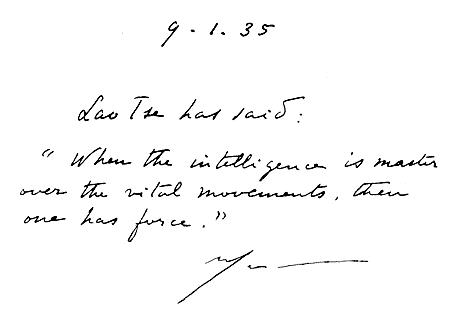 9-1.35
Lao Tse has said:
"When the intelligence is master
over the vital movements, then
one has force."